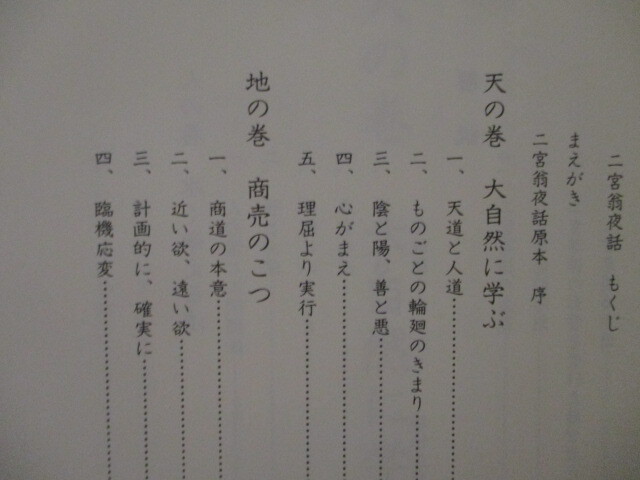 二宮翁夜話 もくじ
まえがき
二宮翁夜話原本 序
天の巻 大自然に学ぶ
一、天道と人道
二、ものごとの輪廻のきまり
三、陰と陽、善と悪
四、心がまえ
五、理屈より実行
地の巻 商売のこつ
一、商道の本意
二、近い欲、遠い欲
三、計画的に、確実に
四、臨機応変